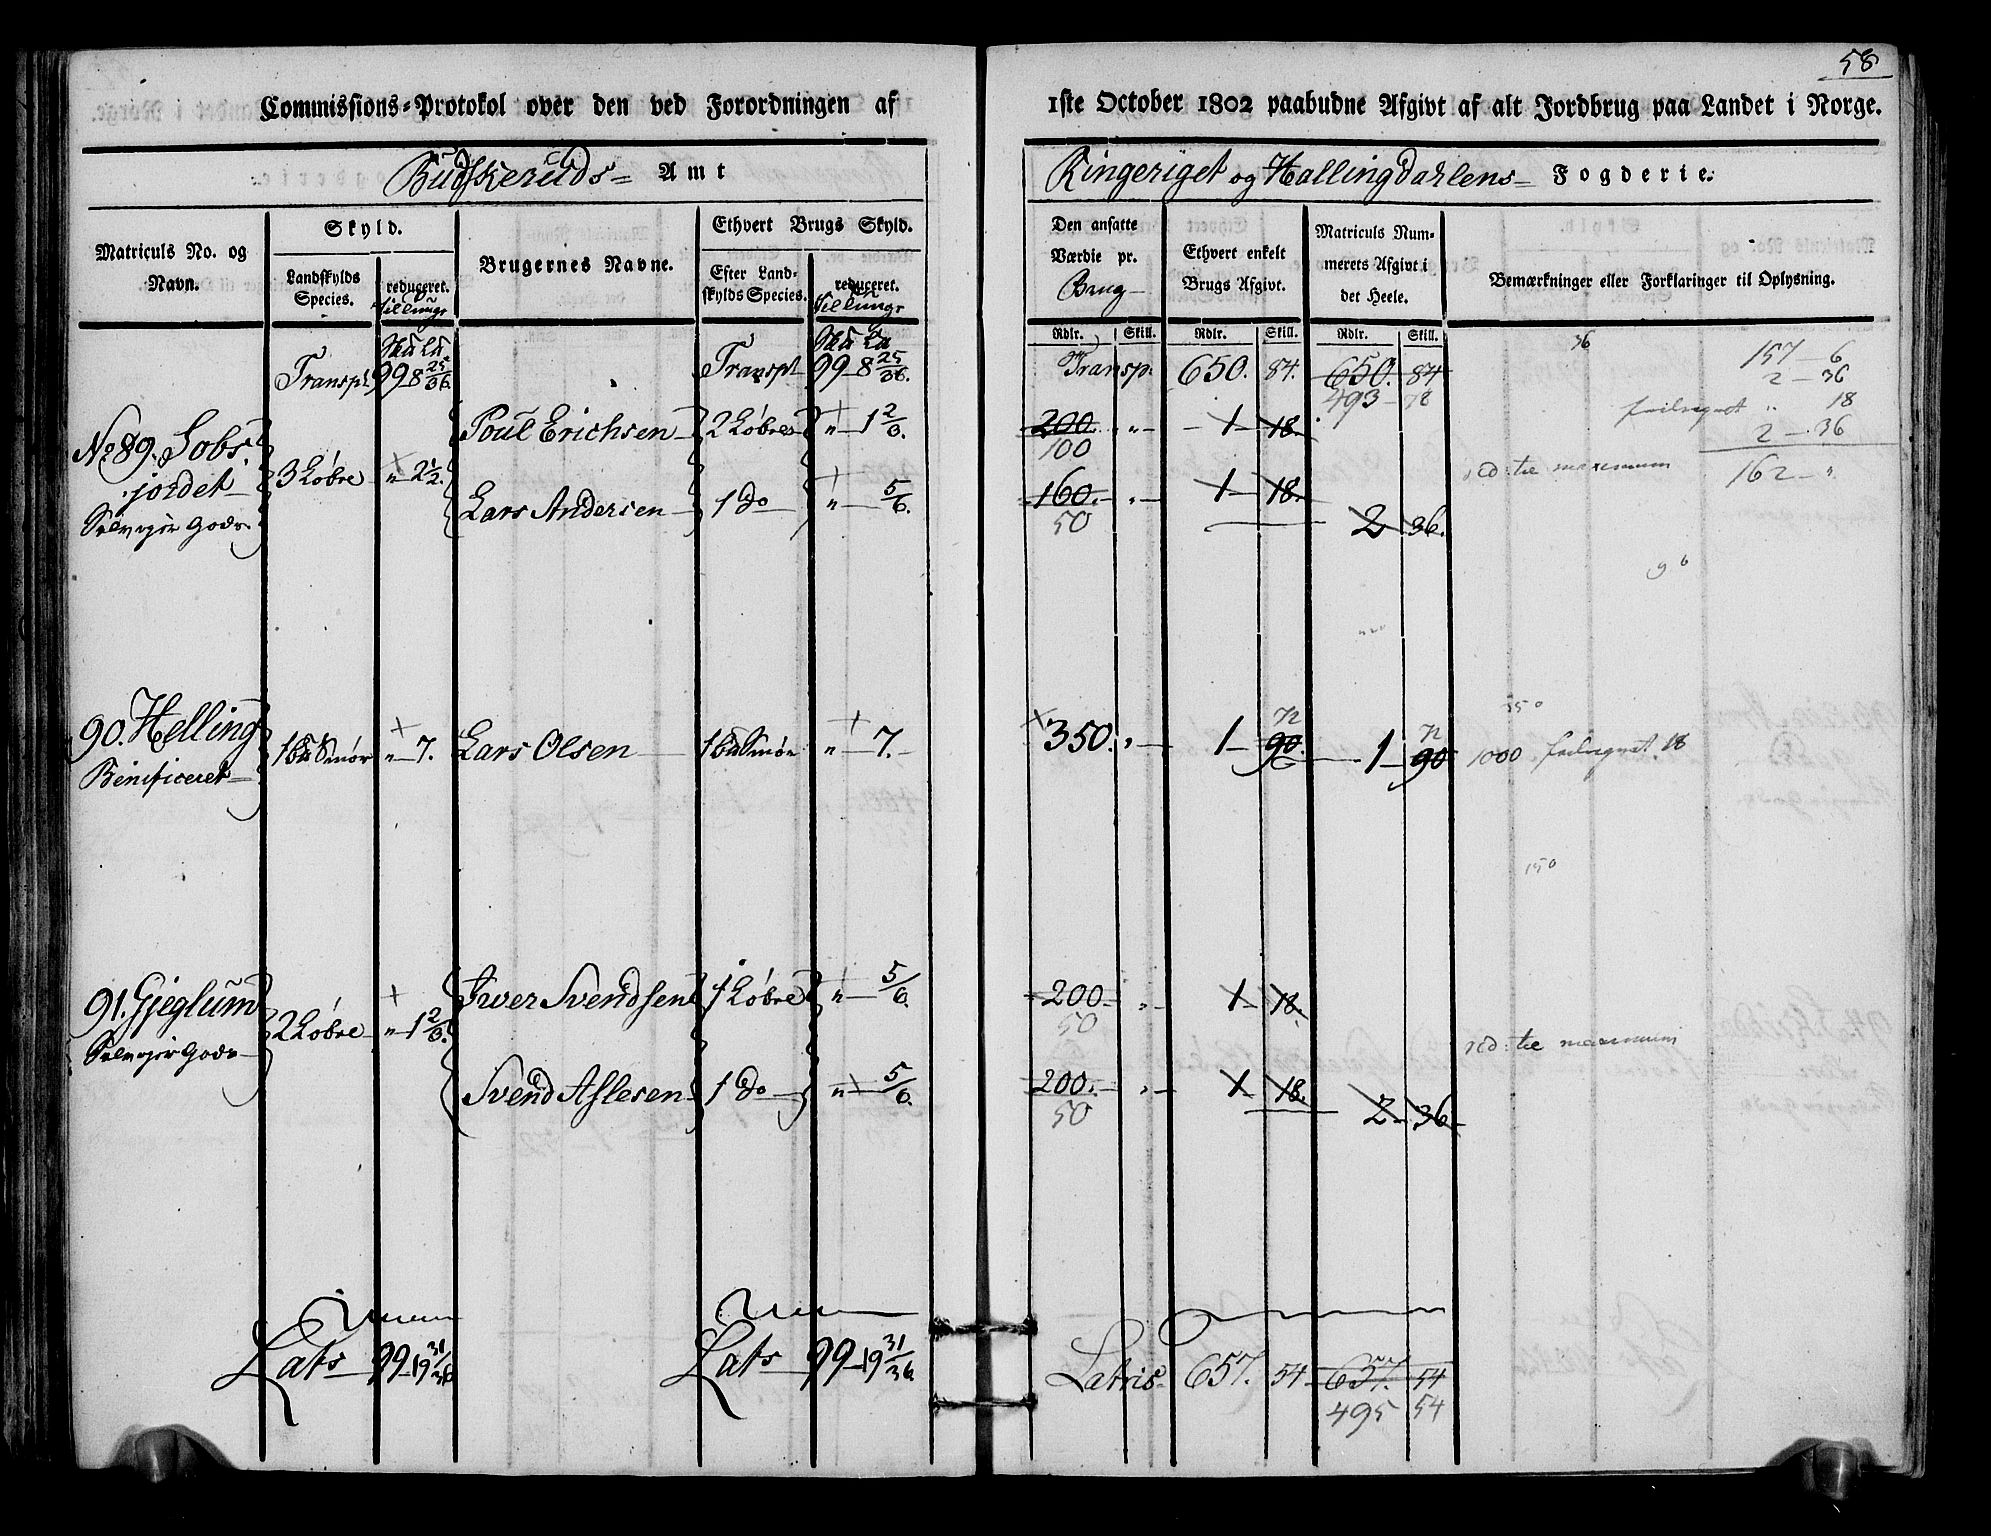 58
Commissions=Protokol over den ved Forordningen af 1ste October 1802 paabudne Afgivt af alt Jordbrug paa Landet i Norge.
Budskeruds= Amt
Ringeriget og Hallingdahlens= Fogderie.
Matriculs No. og Navn.
Skyld.
Landskylds Species.
reduceret.
Brugernes Navne.
Ethvert Brugs Skyld.
Efter Landskylds Species.
reduceret.
Den ansatte Værdie pr. Brug
Ethvert enkelt Brugs Afgivt.
Matriculs Nummerets Afgivt i det Heele.
Bemærkninger eller Forklaringer til Oplysning.
Rdlr. Skill. Rdlr. Skill. Rdlr. Skill.
Transpt 99 8 25/36. Transpt 99 8 25/36. Transp. 650. 84. 650. 84
493 78
36
157 - 6
2 - 36
feilregnet " 18
2 - 36
162 - "
No 89. Sobs,
jordet
Selvejer Gods
3 Løbre " 2 1/2.
Poul Erichsen 2 Løbre " 1 2/3. 200. " 1 18.
100
Lars Andersen 1 do " 5/6. 160. " 1 18.
50
2 36.
red: til maximum
90. Helling
Benificeret
1 Smør " 7. Lars Olsen 1 Smør " 7. 350. " 1 90. 1 90
72 72
1000 feilregnet. 18
150
91. Gjeglum
Selvejer Gods
2 Løbre " 1 2/3.
Iver Svendsen 1 Løbre " 5/6. 200 " 1 18.
50
Svend Aslesen 1 do " 5/6. 200. " 1 18.
50
2 36
red: til maximum
Lats 99 19 31/36 Lats 99 19 31/36 Latris 657. 54 657. 54
495 54